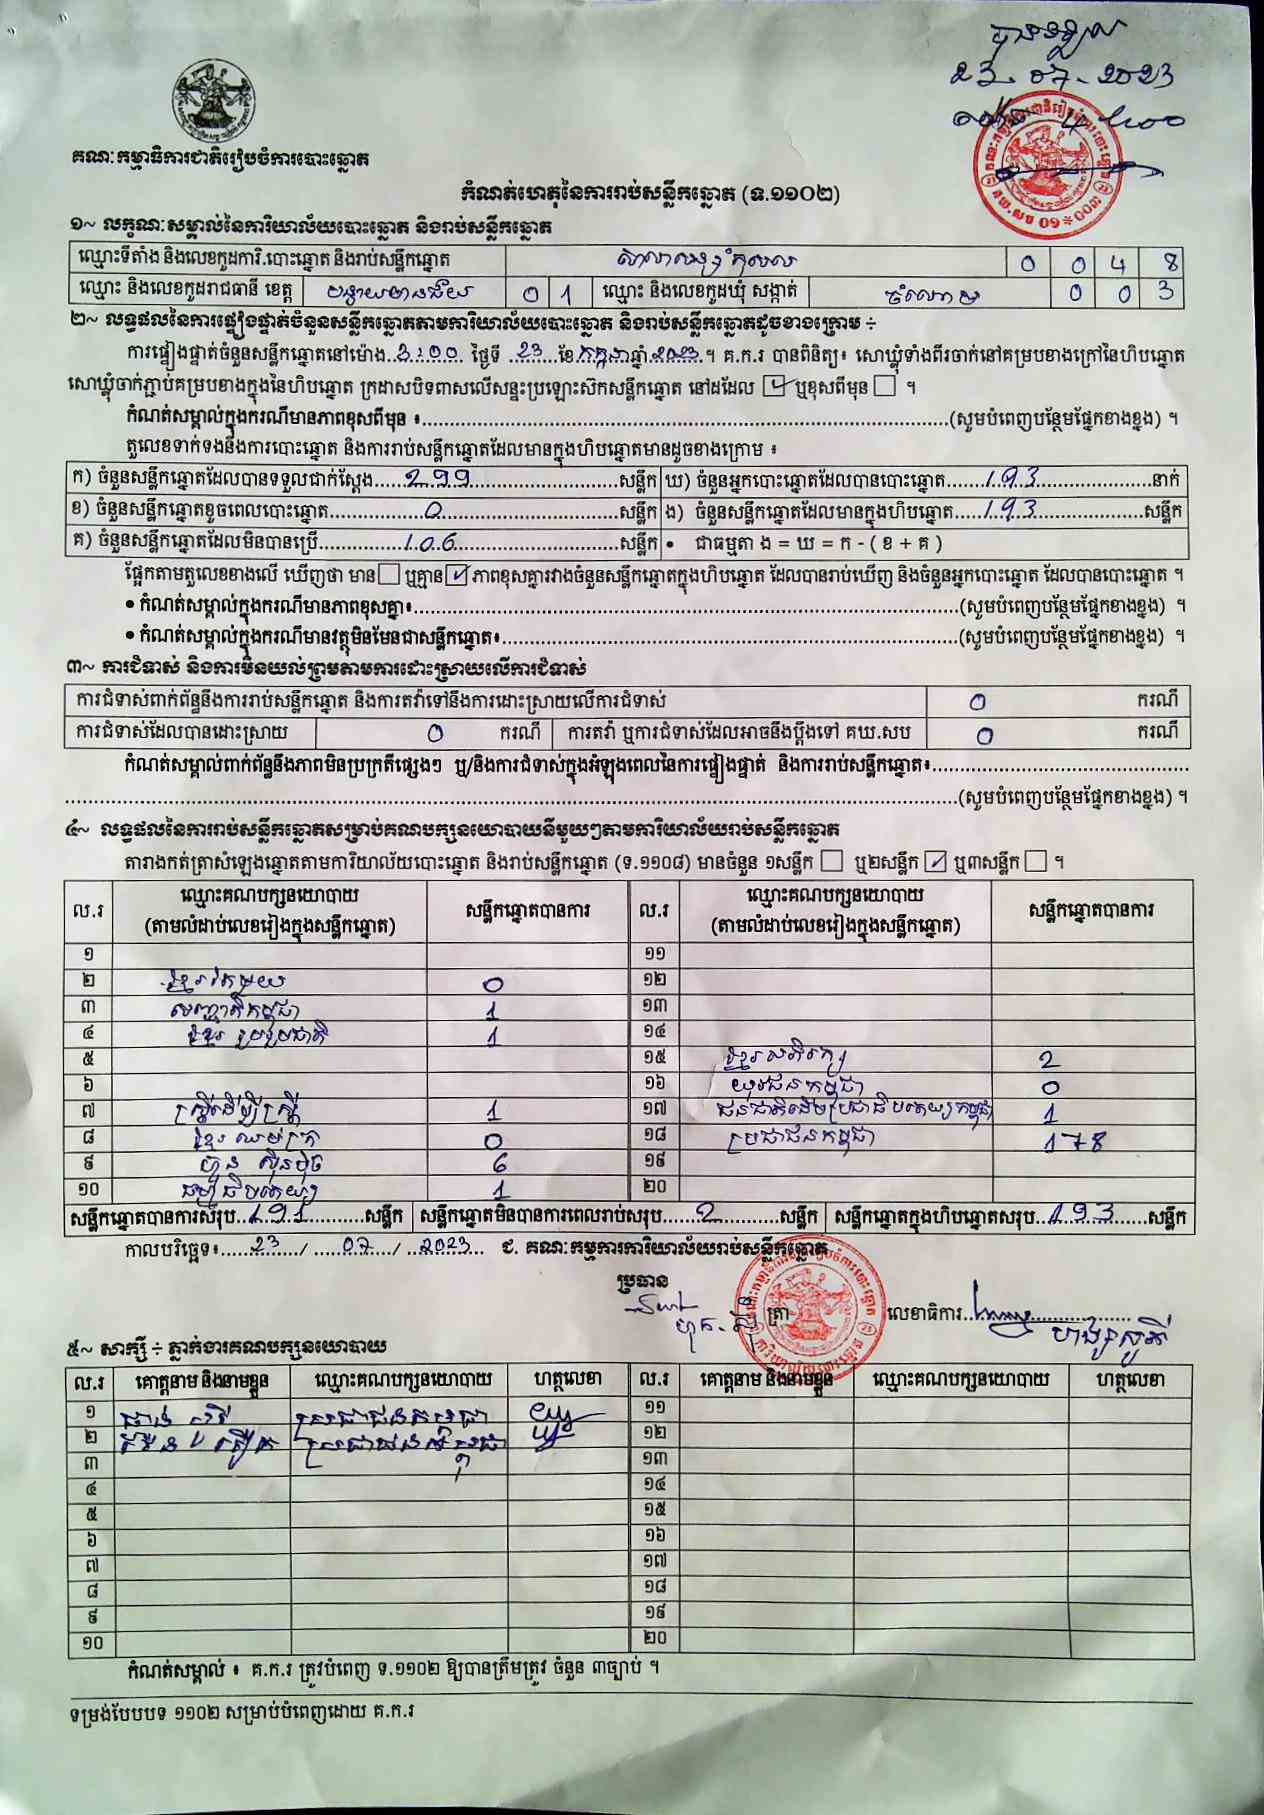 23.07.2023
គណៈកម្មាធិការជាតិរៀបចំការបោះឆ្នោត
កំណត់ហេតុនៃការរាប់សន្លឹកឆ្នោត (ទ.១១០២)
១~ លក្ខណៈសម្គាល់នៃការិយាល័យបោះឆ្នោត និងរាប់សន្លឹកឆ្នោត
ឈ្មោះទីតាំង និងលេខកូដការិ.បោះឆ្នោត និងរាប់សន្លឹកឆ្នោត 0 0 4 8
ឈ្មោះ និងលេខកូដរាជធានី ខេត្ត បន្ទាយមានជ័យ 0 1 ឈ្មោះ និងលេខកូដឃុំ សង្កាត់ ចំណោម 0 0 3
២~ លទ្ធផលនៃការផ្ទៀងផ្ទាត់ចំនួនសន្លឹកឆ្នោតតាមការិយាល័យបោះឆ្នោត និងរាប់សន្លឹកឆ្នោតដូចខាងក្រោម ÷
ការផ្ទៀងផ្ទាត់ចំនួនសន្លឹកឆ្នោតនៅម៉ោង..3:00 ថ្ងៃទី 23 ខែ កក្កដា ឆ្នាំ 2023 ។ គ.ក.រ បានពិនិត្យ៖ សោឃ្លុំទាំងពីរចាក់នៅគម្របខាងក្រៅនៃហិបឆ្នោត
សោឃ្លុំចាក់ភ្ជាប់គម្របខាងក្នុងនៃហិបឆ្នោត ក្រដាសបិទពាសលើសន្ទះប្រឡោះស៊កសន្លឹកឆ្នោត នៅដដែល ☑ ឬខុសពីមុន ☐ ។
កំណត់សម្គាល់ក្នុងករណីមានភាពខុសពីមុន ៖..........(សូមបំពេញបន្ថែមផ្នែកខាងខ្នង) ។
តួលេខទាក់ទងនឹងការបោះឆ្នោត និងការរាប់សន្លឹកឆ្នោតដែលមានក្នុងហិបឆ្នោតមានដូចខាងក្រោម ៖
ក) ចំនួនសន្លឹកឆ្នោតដែលបានទទួលជាក់ស្តែង.....299.....សន្លឹក ឃ) ចំនួនអ្នកបោះឆ្នោតដែលបានបោះឆ្នោត.....193.....នាក់
ខ) ចំនួនសន្លឹកឆ្នោតខូចពេលបោះឆ្នោត.....0.....សន្លឹក ង) ចំនួនសន្លឹកឆ្នោតដែលមានក្នុងហិបឆ្នោត.....193.....សន្លឹក
គ) ចំនួនសន្លឹកឆ្នោតដែលមិនបានប្រើ.....106.....សន្លឹក • ជាធម្មតា ង = ឃ = ក - ( ខ + គ )
ផ្អែកតាមតួលេខខាងលើ ឃើញថា មាន ☐ ឬគ្មាន ☑ ភាពខុសគ្នារវាងចំនួនសន្លឹកឆ្នោតក្នុងហិបឆ្នោត ដែលបានរាប់ឃើញ និងចំនួនអ្នកបោះឆ្នោត ដែលបានបោះឆ្នោត ។
• កំណត់សម្គាល់ក្នុងករណីមានភាពខុសគ្នា៖..........(សូមបំពេញបន្ថែមផ្នែកខាងខ្នង) ។
• កំណត់សម្គាល់ក្នុងករណីមានវត្ថុមិនមែនជាសន្លឹកឆ្នោត៖..........(សូមបំពេញបន្ថែមផ្នែកខាងខ្នង) ។
៣~ ការជំទាស់ និងការមិនយល់ព្រមតាមការដោះស្រាយលើការជំទាស់
ការជំទាស់ពាក់ព័ន្ធនឹងការរាប់សន្លឹកឆ្នោត និងការតវ៉ាទៅនឹងការដោះស្រាយលើការជំទាស់ 0 ករណី
ការជំទាស់ដែលបានដោះស្រាយ 0 ករណី ការតវ៉ា ឬការជំទាស់ដែលអាចនឹងប្តឹងទៅ គឃ.សប 0 ករណី
កំណត់សម្គាល់ពាក់ព័ន្ធនឹងភាពមិនប្រក្រតីផ្សេងៗ ឬ/និងការជំទាស់ក្នុងអំឡុងពេលនៃការផ្ទៀងផ្ទាត់ និងការរាប់សន្លឹកឆ្នោត៖..........
..........(សូមបំពេញបន្ថែមផ្នែកខាងខ្នង) ។
៤~ លទ្ធផលនៃការរាប់សន្លឹកឆ្នោតសម្រាប់គណបក្សនយោបាយនីមួយៗតាមការិយាល័យរាប់សន្លឹកឆ្នោត
តារាងកត់ត្រាសំឡេងឆ្នោតតាមការិយាល័យបោះឆ្នោត និងរាប់សន្លឹកឆ្នោត (ទ.១១០៨) មានចំនួន ១សន្លឹក ☐ ឬ២សន្លឹក ☑ ឬ៣សន្លឹក ☐ ។
ល.រ ឈ្មោះគណបក្សនយោបាយ (តាមលំដាប់លេខរៀងក្នុងសន្លឹកឆ្នោត) សន្លឹកឆ្នោតបានការ ល.រ ឈ្មោះគណបក្សនយោបាយ (តាមលំដាប់លេខរៀងក្នុងសន្លឹកឆ្នោត) សន្លឹកឆ្នោតបានការ
១ ១១
២ ខ្មែរតែមួយ 0 ១២
៣ សញ្ជាតិកម្ពុជា 1 ១៣
៤ ខ្មែរ រួបរួមជាតិ 1 ១៤
៥ ១៥ 2
៦ ១៦ យុវជនកម្ពុជា 0
៧ ស្ត្រីដើម្បីស្ត្រី 1 ១៧ ជនជាតិដើមប្រជាធិបតេយ្យកម្ពុជា 1
៨ ខ្មែរ ឈប់ក្រ 0 ១៨ ប្រជាជនកម្ពុជា 178
៩ ហ៊្វុន ស៊ិនប៉ិច 6 ១៩
១០ ធម្មាធិបតេយ្យ 1 ២០
សន្លឹកឆ្នោតបានការសរុប..191....សន្លឹក សន្លឹកឆ្នោតមិនបានការពេលរាប់សរុប.....2.....សន្លឹក សន្លឹកឆ្នោតក្នុងហិបឆ្នោតសរុប..193....សន្លឹក
កាលបរិច្ឆេទ៖.....23..../....07..../..2023... ជ. គណៈកម្មការការិយាល័យរាប់សន្លឹកឆ្នោត
ប្រធាន
ត្រា លេខាធិការ..........
៥~ សាក្សី ÷ ភ្នាក់ងារគណបក្សនយោបាយ
ល.រ គោត្តនាម និងនាមខ្លួន ឈ្មោះគណបក្សនយោបាយ ហត្ថលេខា ល.រ គោត្តនាម និងនាមខ្លួន ឈ្មោះគណបក្សនយោបាយ ហត្ថលេខា
១ ប្រជាជនកម្ពុជា ១១
២ ប្រជាជនកម្ពុជា ១២
៣ ១៣
៤ ១៤
៥ ១៥
៦ ១៦
៧ ១៧
៨ ១៨
៩ ១៩
១០ ២០
កំណត់សម្គាល់ ៖ គ.ក.រ ត្រូវបំពេញ ទ.១១០២ ឱ្យបានត្រឹមត្រូវ ចំនួន ៣ច្បាប់ ។
ទម្រង់បែបបទ ១១០២ សម្រាប់បំពេញដោយ គ.ក.រ